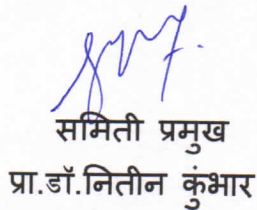 समिती प्रमुख
प्रा.डॉ.नितीन कुंभार